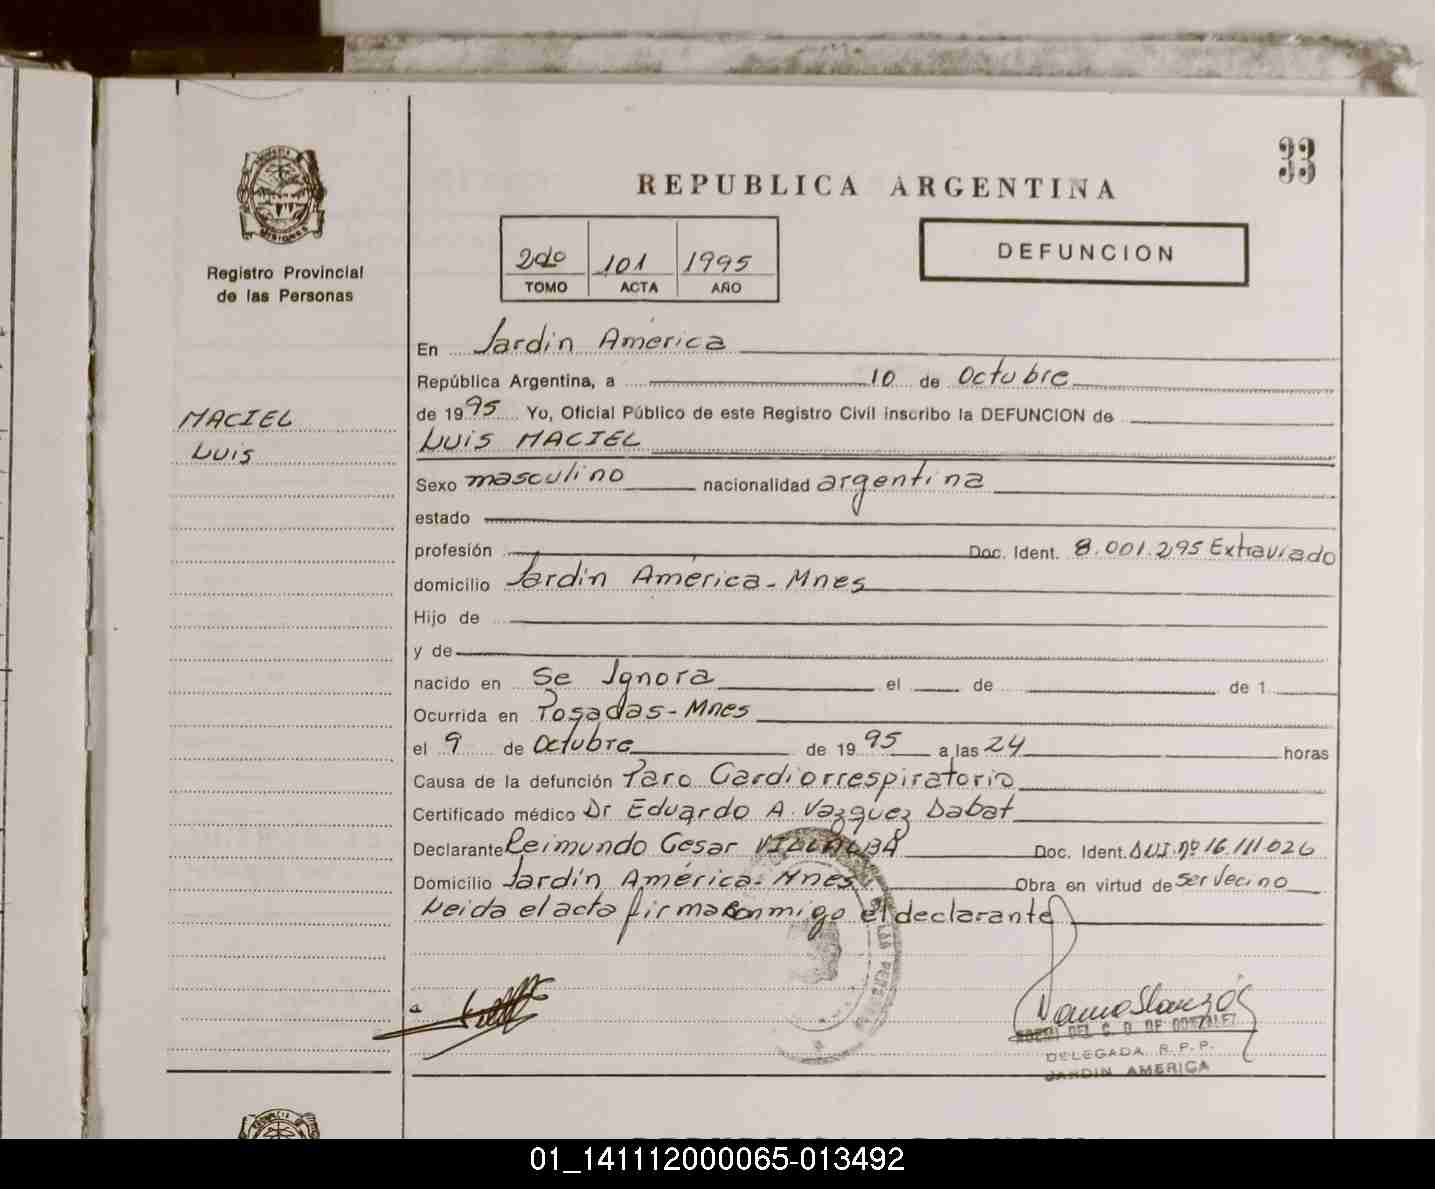 33
REPUBLICA ARGENTINA
PROVINCIA DE
MISIONES
Registro Provincial
de las Personas
2do 101 1995
TOMO ACTA AÑO
DEFUNCION
En Jardin América
República Argentina, a 10 de Octubre
MACIEL
Luis
de 1995 Yo, Oficial Público de este Registro Civil inscribo la DEFUNCION de
Luis MACIEL
Sexo masculino nacionalidad argentina
estado
profesión Doc. Ident. 8.001.295 Extraviado
domicilio Jardín América - Mnes
Hijo de
y de
nacido en Se Ignora el de de 1
Ocurrida en Posadas - Mnes
el 9 de Octubre de 1995 a las 24 horas
Causa de la defunción Paro Cardiorrespiratorio
Certificado médico Dr Eduardo A. Vazquez Dabat
Declarante Reimundo Cesar VILLALBA Doc. Ident. D.U.I. nº 16.111.026
Domicilio Jardín América - Mnes. Obra en virtud de ser Vecino
Leida el acta firma conmigo el declarante
LAS PERSONAS
DEL C. D. DE GONZALEZ
DELEGADA R.P.P.
JARDIN AMERICA
01_141112000065-013492